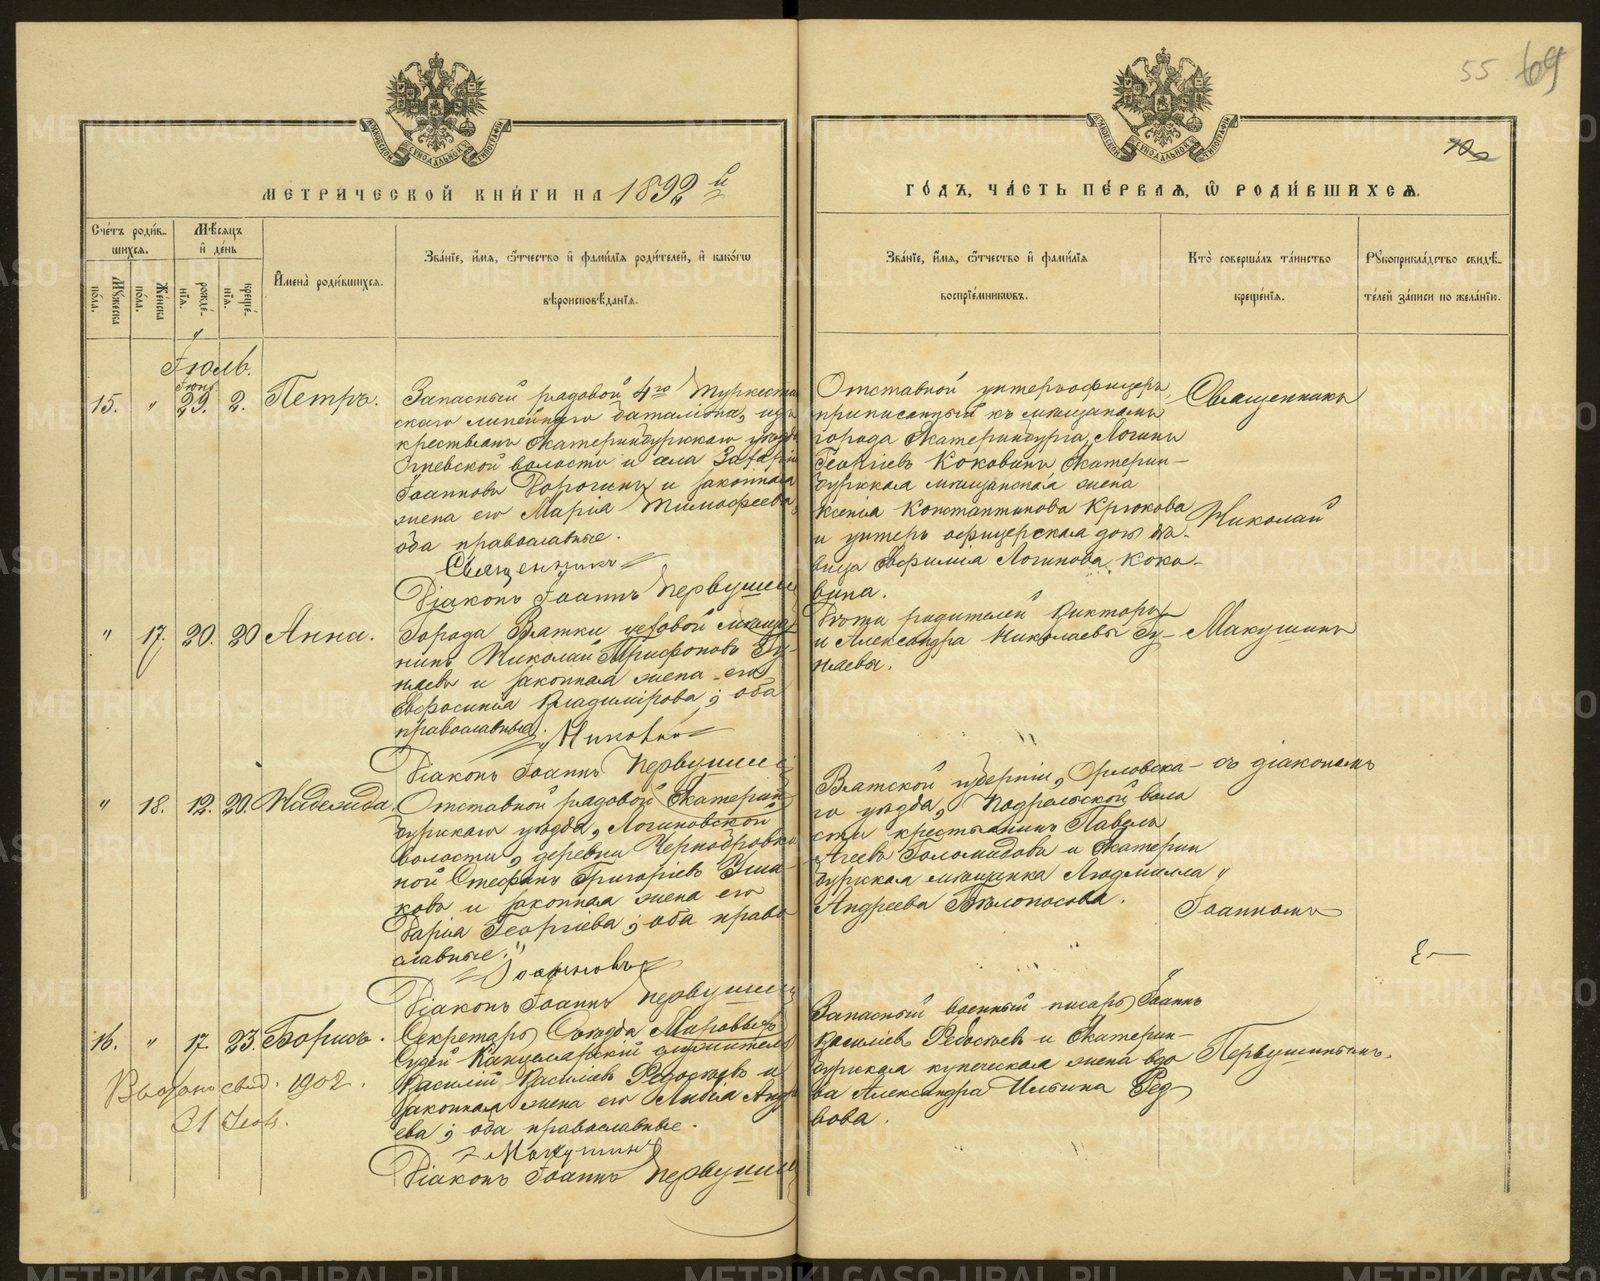 55 69
МЕТРИЧЕСКОЙ КНИГИ НА 1892 й
ГОДЪ, ЧАСТЬ ПЕРВАЯ, Ѡ РОДИВШИХСЯ.
Счетъ родившихся.
Мужеска пола.
Женска пола.
Мѣсяцъ и день
рожденія.
крещенія.
Имена родившихся.
Званіе, имя, ѿчество и фамилія родителей, и какогѡ
вѣроисповѣданія.
Званіе, имя, ѿчество и фамилія
воспріемниковъ.
Кто совершалъ таинство
крещенія.
Рукоприкладство свидѣ-
телей записи по желанію.
Іюль.
Іюнь
15. " 29. 2. Петръ.
Запасный рядовой 4го Туркестан
скаго линейнаго баталіона, изъ
крестьянъ Екатеринбургскаго уѣзда
волости и села
Іоанновъ и законная
жена его Марія Тимофеева,
оба православные.
Священникъ
Діаконъ Іоаннъ Первушинъ
Отставной унтеръ-офицеръ,
приписанный къ мѣщанамъ
города Екатеринбурга, Логинъ
Георгіевъ Коковинъ Екатерин-
бургская мѣщанская жена
Ксенія Константинова Крюкова
и унтеръ офицерская дочь дѣ-
вица Евфимія Логинова Коко-
вина.
Священникъ
Николай
" 17. 20. 20 Анна.
Города Вятки цеховой мѣща-
нинъ Николай Трифоновъ Зу-
наевъ и законная жена его
Евфросинія Владимірова; оба
православные.
Никовай
Діаконъ Іоаннъ Первушинъ
Дѣти родителей Викторъ
и Александра Николаевы Зу-
наевы.
Макушинъ
" 18. 12. 20. Надежда.
Отставной рядовой Екатерин
бургскаго уѣзда, Логиновской
волости, деревни
ной Стефанъ Григоріевъ Уша-
ковъ и законная жена его
Дарія Георгіева; оба право
славные."
Діаконъ Іоаннъ Первушинъ
Вятской губерніи, Орловска-
го уѣзда, Подрельской воло
сти крестьянинъ Павелъ
Агеевъ Голомидовъ и Екатерин
бургская мѣщанка Людмилла
Андреева Бѣлоносова.
съ діакономъ
"
Іоанномъ
16. " 17. 23. Борисъ.
Секретарь Съѣзда Мировыхъ
Судей Канцелярскій служитель
Василій Василіевъ Ребостьевъ и
законная жена его Лидія Андр
еева; оба православные.
Макушинъ
Діаконъ Іоаннъ Первушинъ
Запасный военный писарь Іоаннъ
Василіевъ Ребостьевъ и Екатерин-
бургская купеческая жена вдо
ва Александра Ильина Ред
вова.
Первушинымъ.
Выдано свид. 1902.
31 Іюл.